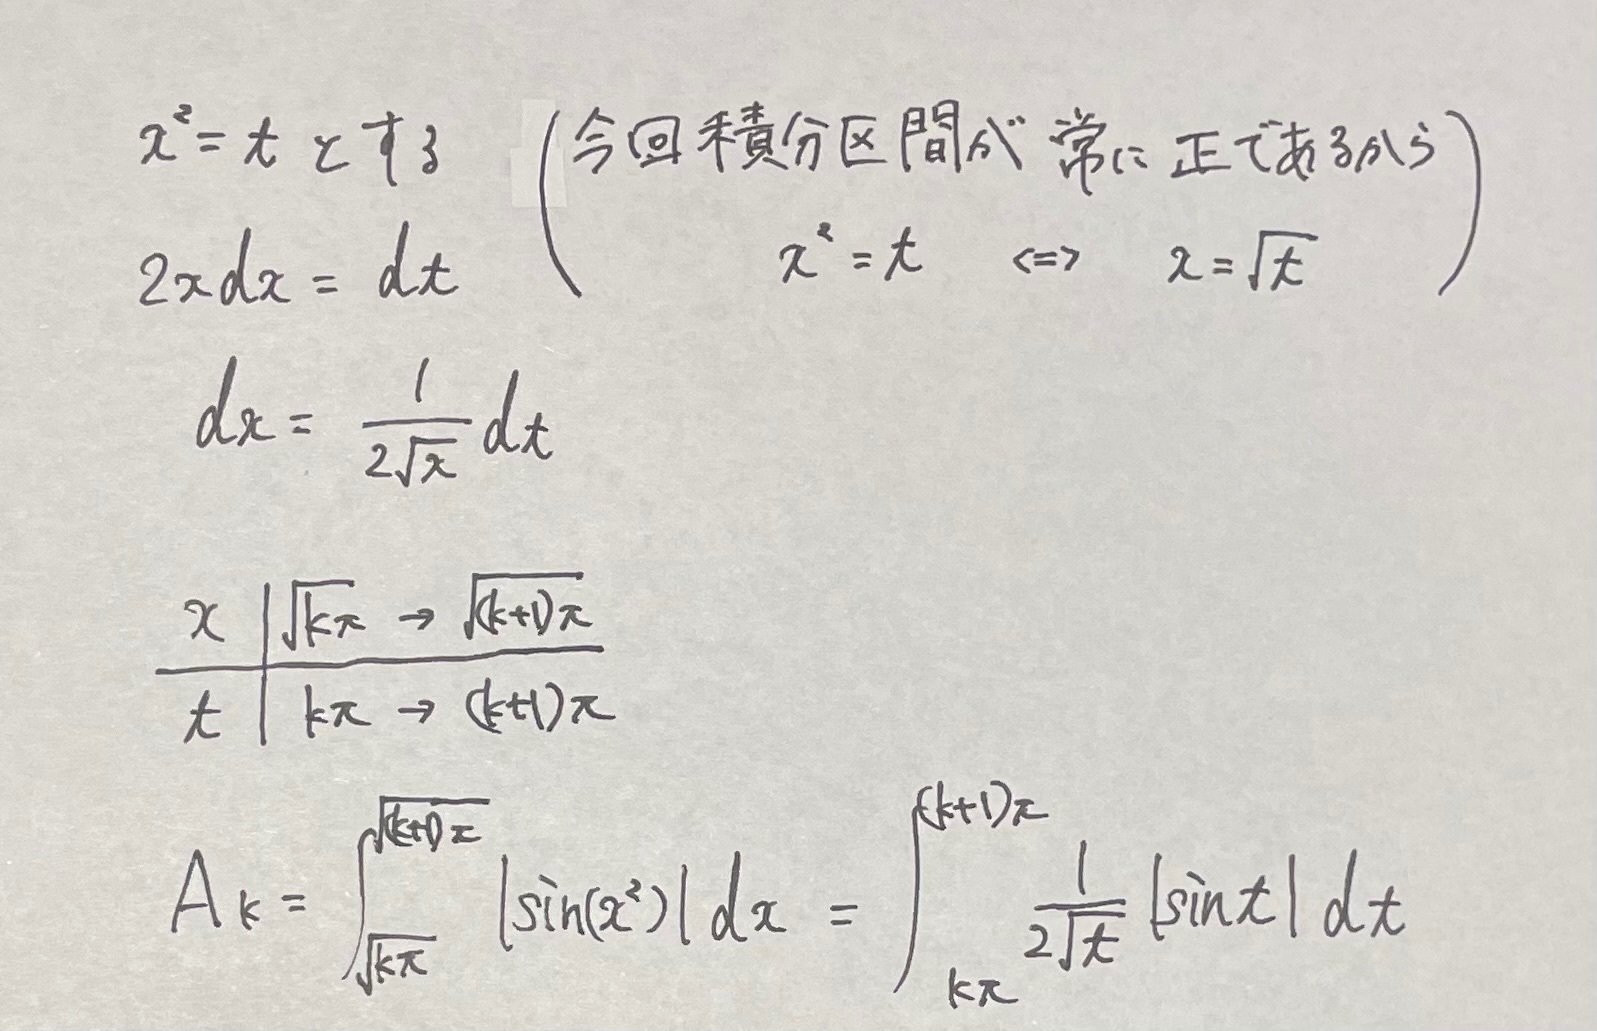 x² = t とする (今回積分区間が常に正であるから
x² = t ⇔ x = √t)
2xdx = dt
dx = 1/(2√x) dt
x | √kπ → √(k+1)π
t | kπ → (k+1)π
A_k = ∫_{√kπ}^{√(k+1)π} |sin(x²)| dx = ∫_{kπ}^{(k+1)π} 1/(2√t) |sin t| dt